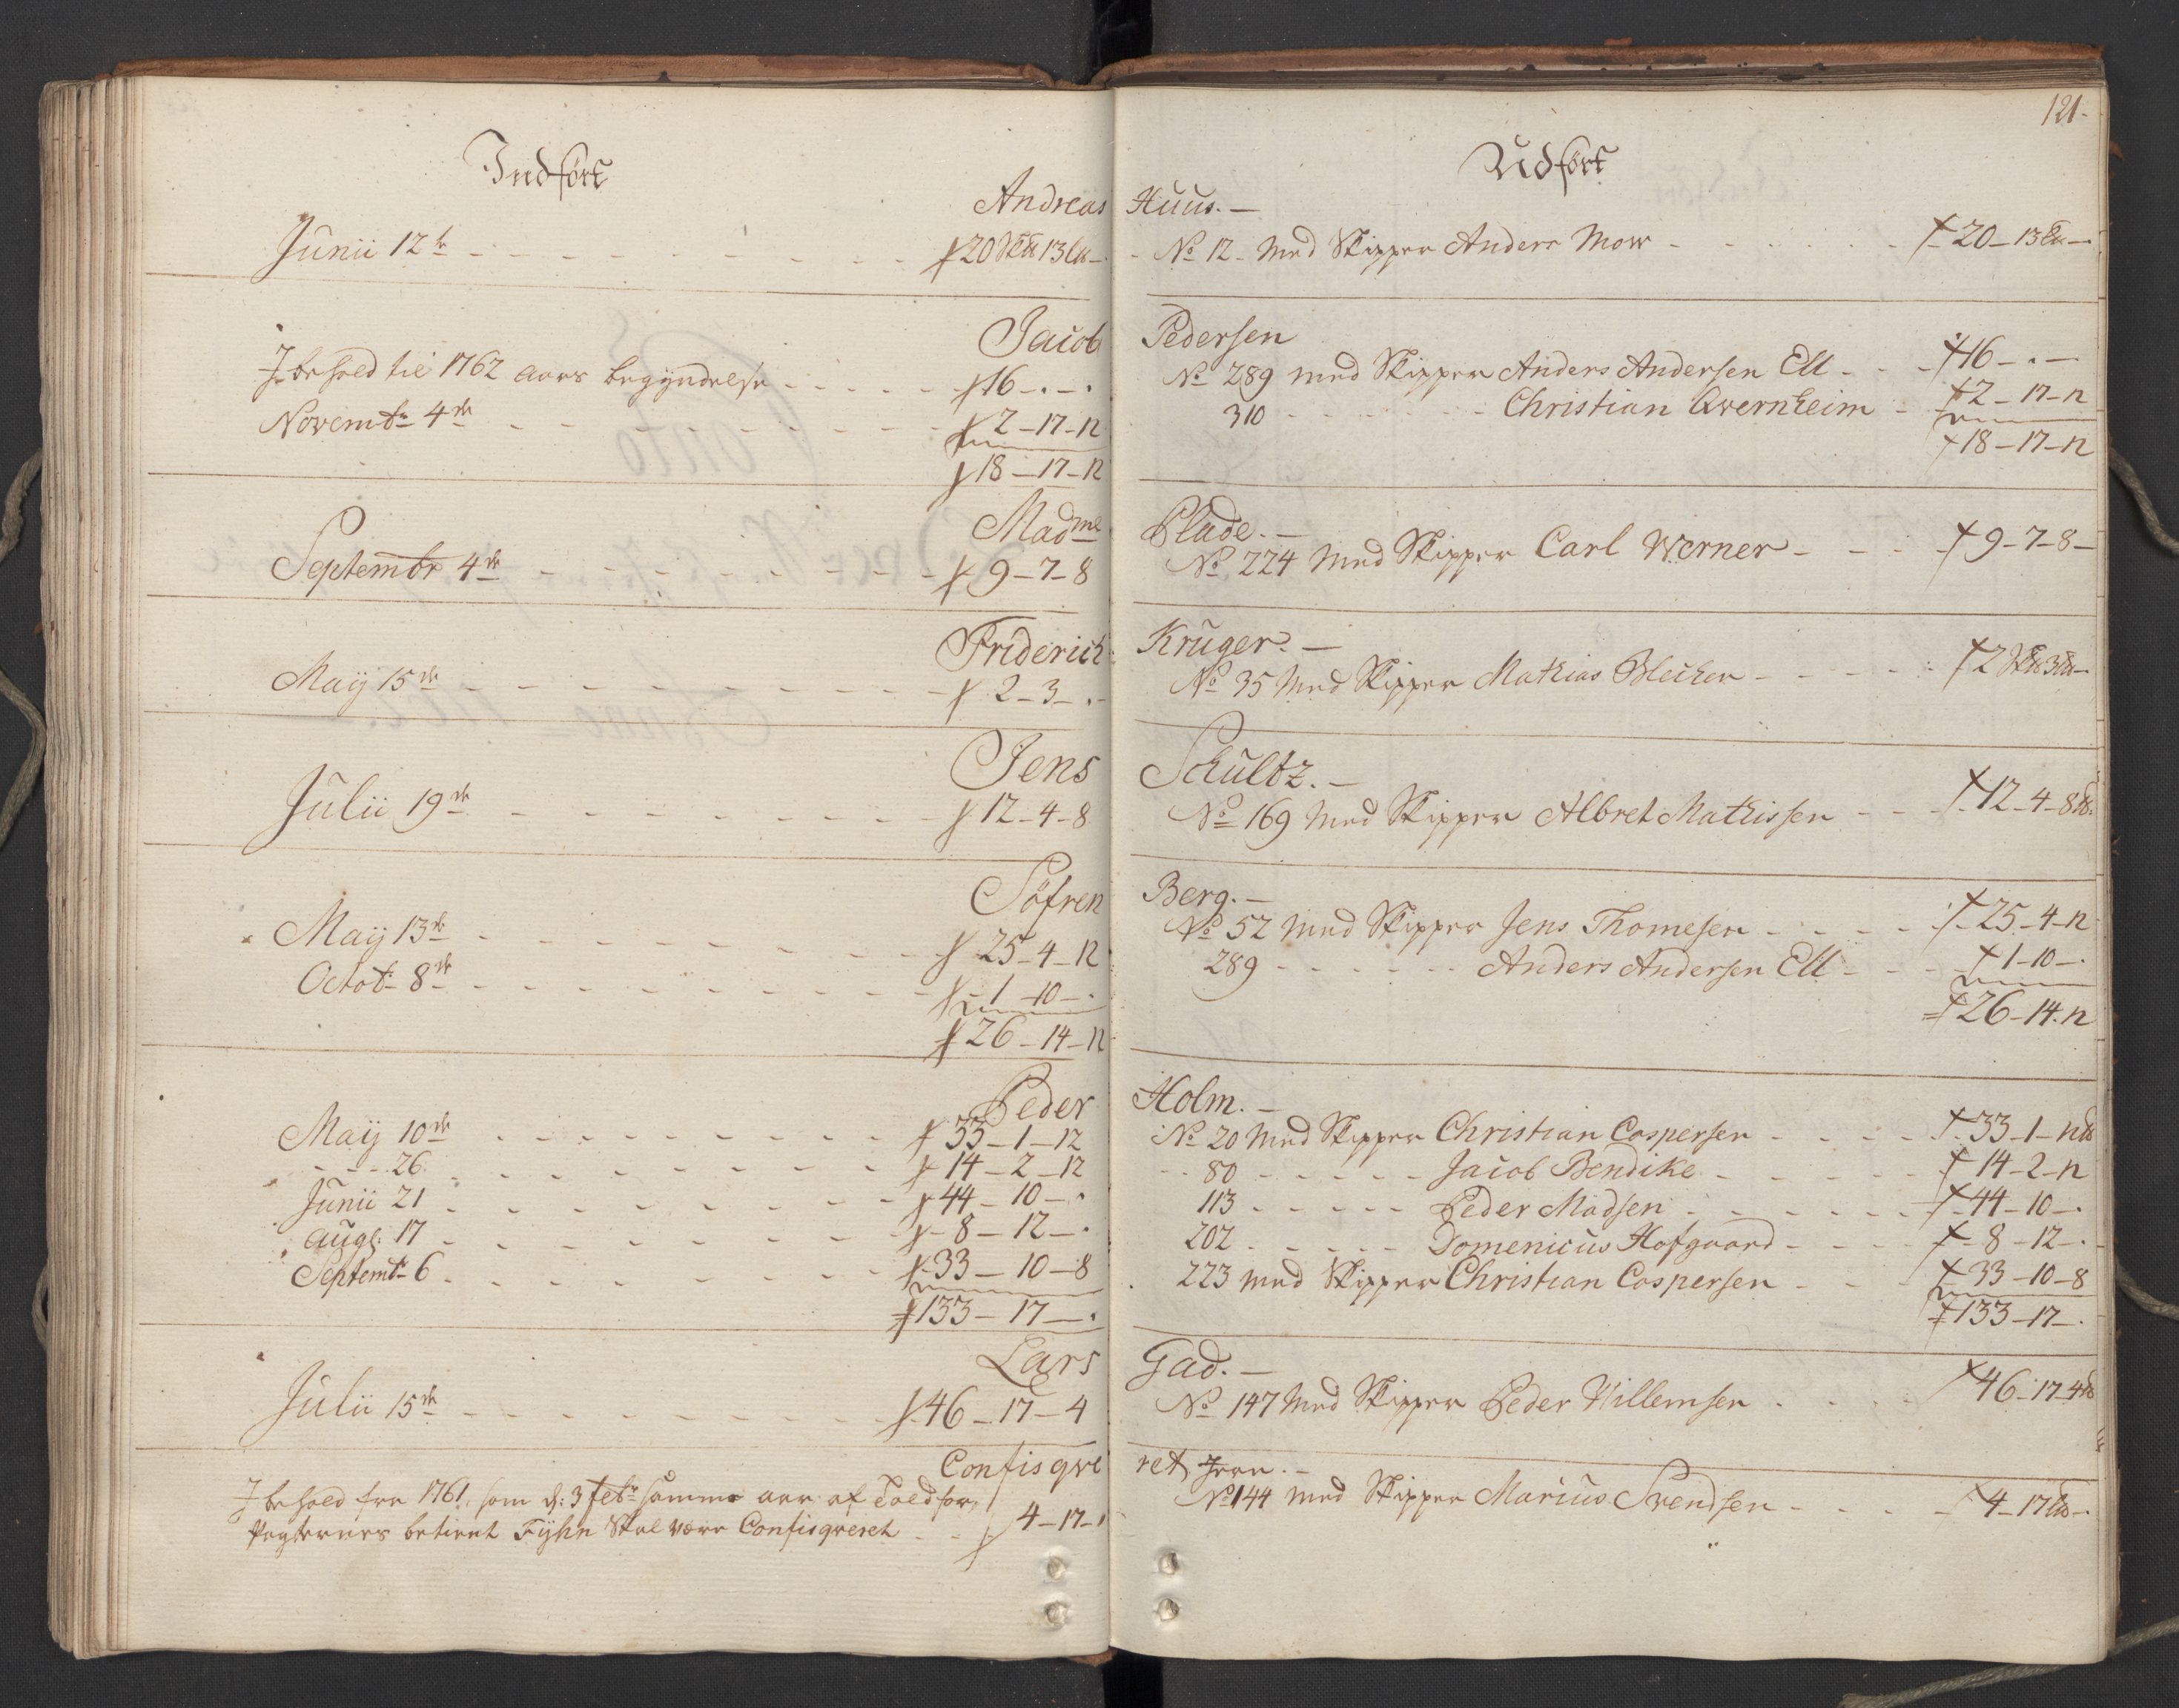 Indført
Andreas
Junii 12te - - - - - - - 20 Sk℔ 13 L℔ -
Jacob
I behold til 1762 aars begyndelse - - - - - 16 - . - .
Novembr 4de - - - - - - - 2 - 17 - 12
18 - 17 - 12
Madme
Septembr 4de - - - - - - - 9 - 7 - 8
Friderich
Maÿ 15de - - - - - - - 2 - 3 - . -
Jens
Julii 19de - - - - - - - 12 - 4 - 8
Søfren
Maÿ 13de - - - - - - - 25 - 4 - 12
Octobr 8de - - - - - - - 1 - 10 - .
26 - 14 - 12
Peder
Maÿ 10de - - - - - - - 33 - 1 - 12
- - - 26 - - - - - - - 14 - 2 - 12
Junii 21 - - - - - - - 44 - 10 - .
Augs. 17 - - - - - - - 8 - 12 - .
Septembr 6 - - - - - - - 33 - 10 - 8
133 - 17 - .
Lars
Julii 15de - - - - - - - 46 - 17 - 4
Confisqve
I behold fra 1761, som d: 3 Febr samme aar af Toldfor,
pagternes betient Fÿhn Skal være Confisqveret - - - 4 - 17 - .
121.
Udført
Huus. -
No 12 - Med Skipper Anders Mow - - - - - 20 - 13 L℔ - .
Pedersen
No 289 med Skipper Anders Andersen Ell - - - 16 - . -
310 - - - - - - Christian Qvernheim - 2 - 17 - 12
18 - 17 - 12
Plade. -
No 224 Med Skipper Carl Werner - - - - 9 - 7 - 8 -
Krüger. -
No 35 Med Skipper Mathias Blecher - - - - - 2 Sk℔ 3 L℔ -
Schultz. -
No 169 Med Skipper Albret Mathissen - - - 12 - 4 - 8 ℔.
Berg. -
No 52 Med Skipper Jens Thomesen - - - - - 25 - 4 - 12
289 - - - - - - Anders Andersen Ell - - - 1 - 10 - .
26 - 14 - 12
Holm. -
No 20 Med Skipper Christian Caspersen - - - - 33 - 1 - 12 ℔
80 - - - - - Jacob Bendike - - - - - 14 - 2 - 12
113 - - - - - Peder Madsen - - - - - - 44 - 10 - .
202 - - - - - Domenicus Hofgaard - - - - 8 - 12 - .
223 med Skipper Christian Caspersen - - - 33 - 10 - 8
133 - 17 - .
Gad. -
No 147 Med Skipper Peder Willemsen - - - - 46 - 17 - 4 ℔
ret Jern. -
No 144 med Skipper Marius Svendsen - - - - 4 - 17 L℔ - .